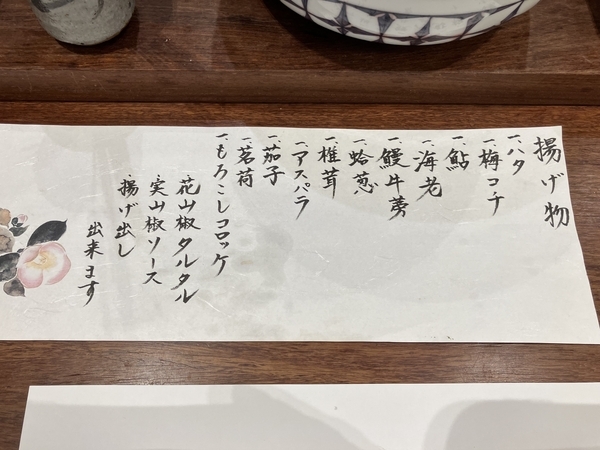 揚げ物
一、ハタ
一、梅コチ
一、鮎
一、海老
一、鰻牛蒡
一、蛤葱
一、椎茸
一、アスパラ
一、茄子
一、茗荷
一、もろこしコロッケ
・花山椒タルタル
・実山椒ソース
・揚げ出し
出来ます